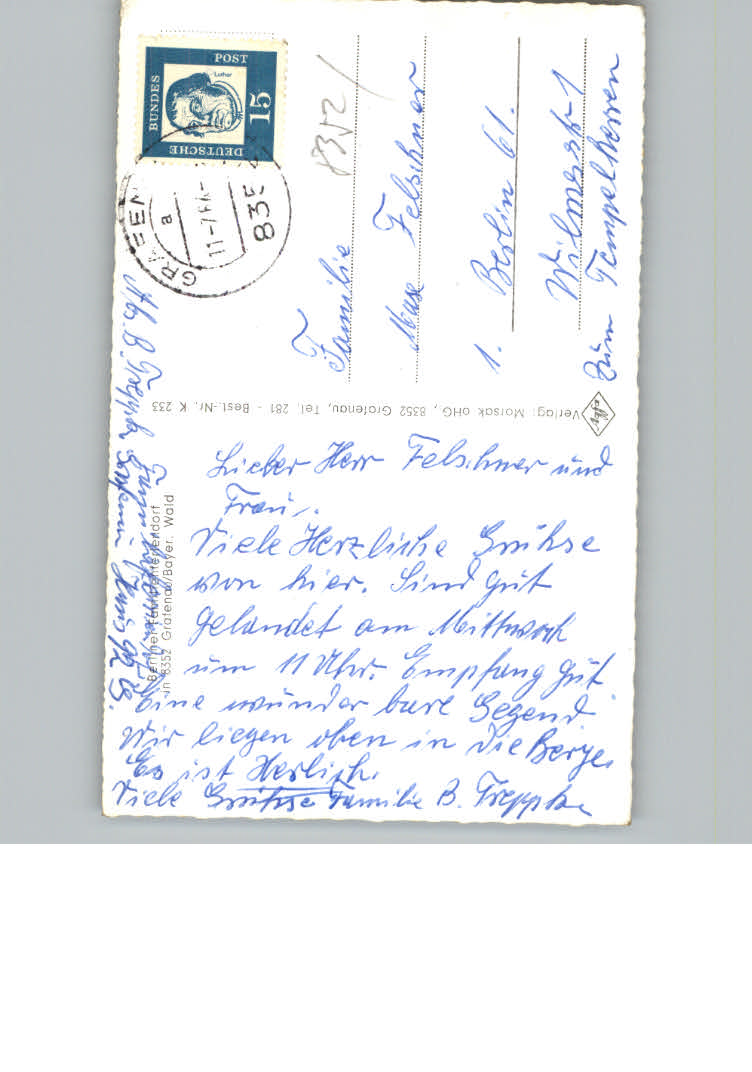 DEUTSCHE
BUNDES
POST
15
Luther
GRAFEN
a
11-7
835
8352
Familie
Max Felschner
1. Berlin 61.
Wilmsstr 1
Zum Tempelherren
Verlag: Morsak oHG, 8352 Grafenau, Tel. 281 - Best.-Nr. K 233
Abs. B. Treppke
Haus 92 B.
Berliner Familienferiendorf
in 8352 Grafenau/Bayer. Wald
Lieber Herr Felschner und
Frau.
Viele Herzliche Grühse
von hier. Sind gut
gelandet am Mittwoch
um 11 Uhr. Empfang gut
Eine wunder bare Gegend
Wir liegen oben in die Berge.
Es ist Herlich.
Viele Grühse Familie B. Treppke